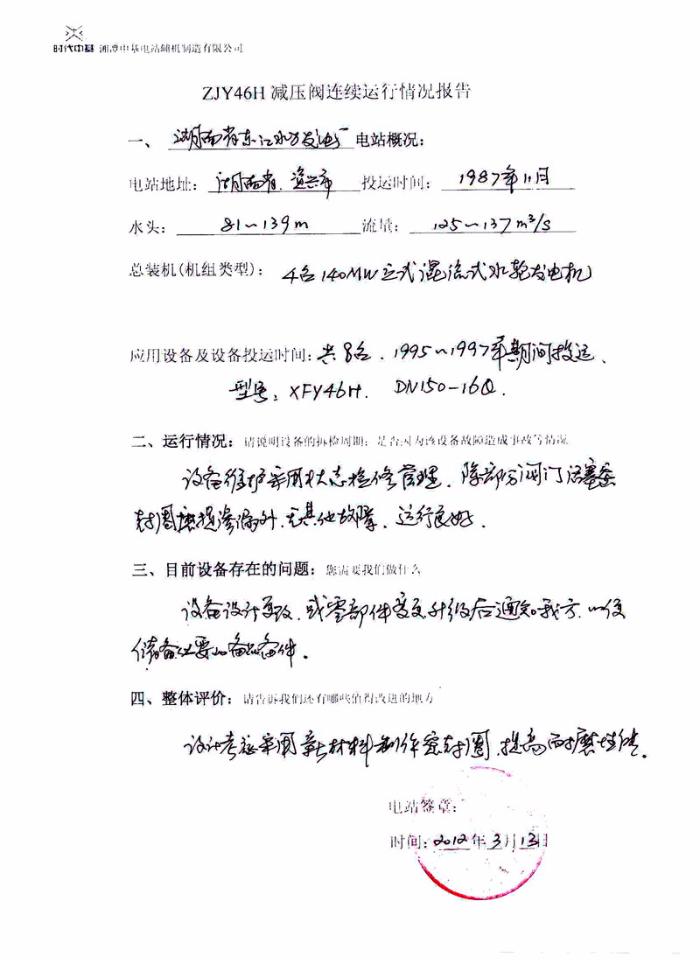 时代中基 湘潭中基电站辅机制造有限公司
ZJY46H 减压阀连续运行情况报告
一、 湖南省东江水力发电厂 电站概况：
电站地址： 湖南省、资兴市 投运时间： 1987年11月
水头： 81~139m 流量： 125~137m³/s
总装机(机组类型)： 4台140MW立式混流式水轮发电机
应用设备及设备投运时间：共8台、1995~1997年期间投运、
型号：XFY46H. DN150-16Q.
二、运行情况：请说明设备的拆检周期；是否因为该设备故障造成事故等情况
设备维护采用状态检修管理，除部分阀门活塞密
封圈磨损渗漏外，无其他故障，运行良好.
三、目前设备存在的问题：您需要我们做什么
设备设计更改，或零部件变更升级后通知我方，以便
储备必要的备品备件.
四、整体评价：请告诉我们还有哪些值得改进的地方
设计考虑采用新材料制作密封圈，提高耐磨性能.
电站签章：
时间：2012年3月13日